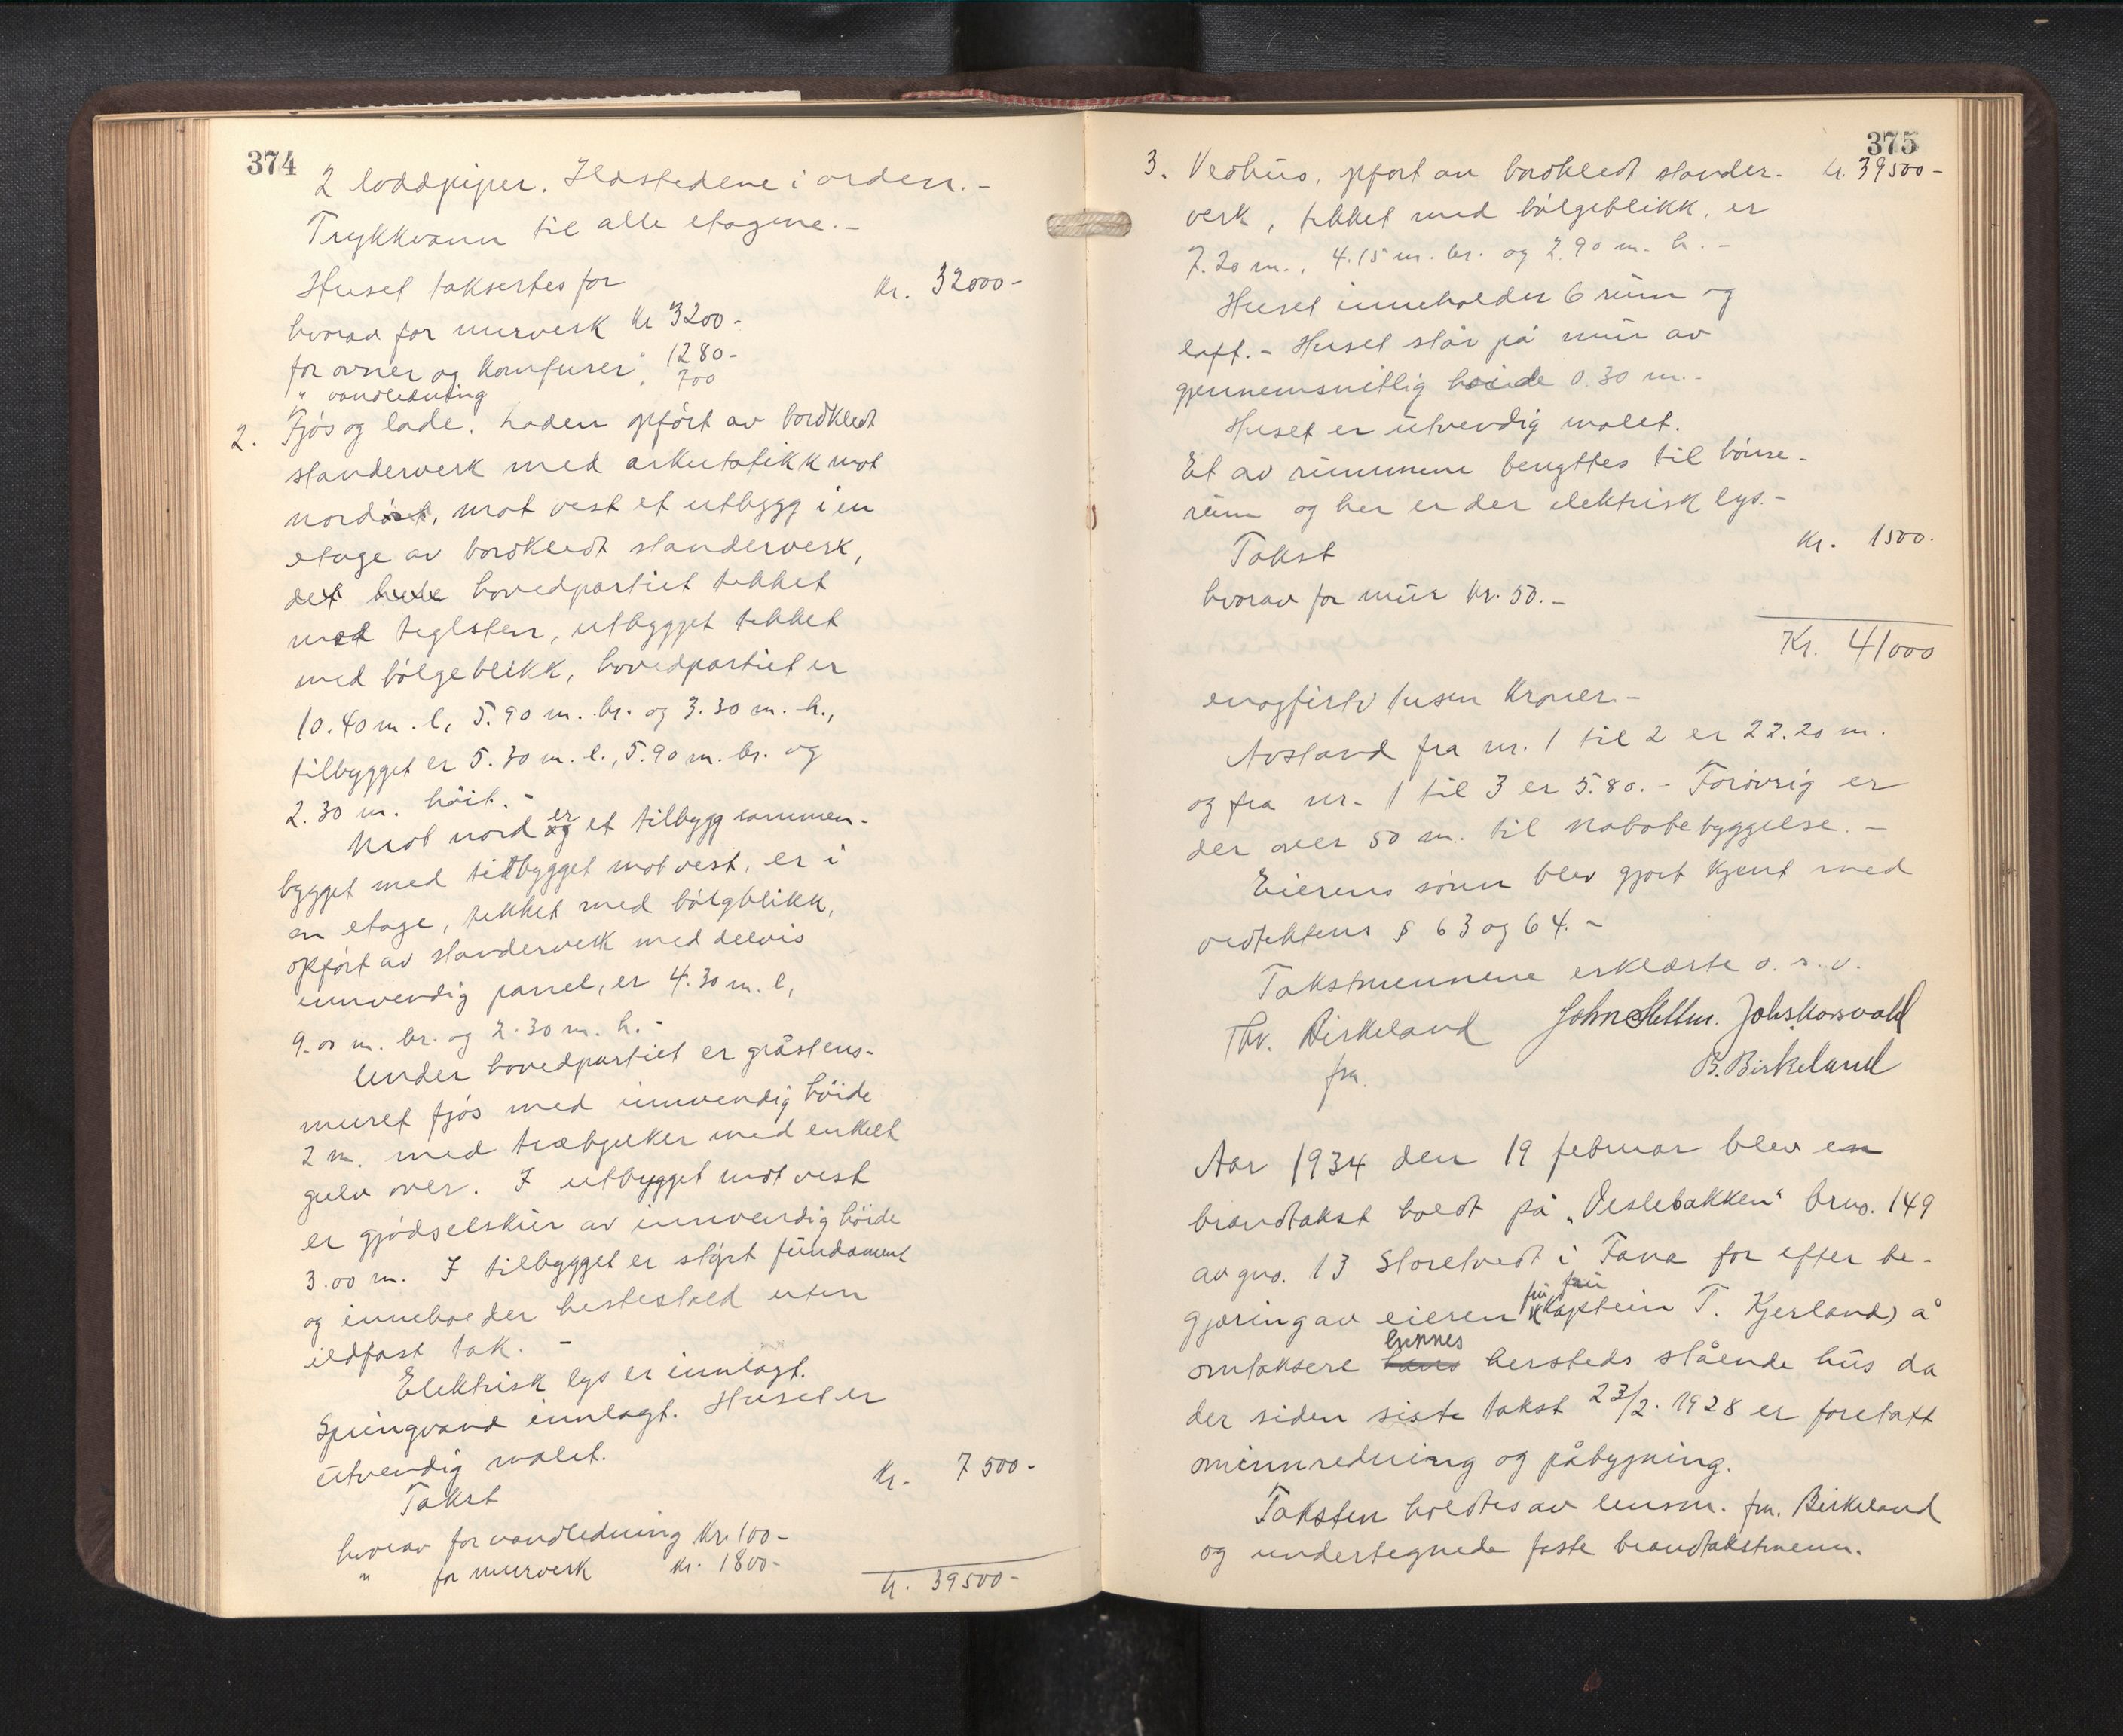 374
2 loddpiper. Ildstedene i orden. -
Trykkvann til alle etagene. -
Huset taksertes for Kr. 32000 -
hvorav for murverk Kr 3200 -
for ovner og komfurer " 1280 -
" vandledning " 700
2. Fjøs og lade. Laden opført av bordkledt
standerverk med
nord, mot vest et utbygg i en
etage av bordkledt standerverk,
det hele hovedpartiet tekket
med teglsten, utbygget tekket
med bølgeblikk, hovedpartiet er
10.40 m. l, 5.90 m. br. og 3.30 m. h.,
tilbygget er 5.30 m. l., 5.90 m. br. og
2.30 m. høit. -
Mot nord er et tilbygg sammen-
bygget med tilbygget mot vest, er i
en etage, tekket med bølgblikk,
opført av standerverk med delvis
innvendig panel, er 4.30 m. l,
9.00 m. br. og 2.30 m. h. -
Under hovedpartiet er gråstens-
muret fjøs med innvendig høide
2 m. med træbjelker med enkelt
gulv over. I utbygget mot vest
er gjødselskur av innvendig høide
3.00 m. I tilbygget er støpt fundament
og inneholder hestestald uten
ildfast tak. -
Elektrisk lys er innlagt.
Springvand innlagt. Huset er
utvendig malet.
Takst Kr. 7500 -
hvorav for vandledning Kr. 100 -
" for murverk Kr. 1800 -
Kr. 39500 -
375
3. Vedhus, opført av bordkledt stander- Kr. 39500 -
verk, tekket med bølgeblikk, er
7.20 m., 4.15 m. br. og 2.90 m. h. -
Huset inneholder 6 rum og
loft. - Huset står på mur av
gjennemsnitlig høide 0.30 m. -
Huset er utvendig malet.
Et av rummene benyttes til hønse-
rum og her er der elektrisk lys. -
Takst Kr. 1500.
hvorav for mur Kr. 50. -
Kr. 41000
enogførti tusen Kroner. -
Avstand fra nr. 1 til 2 er 22.20 m.
og fra nr. 1 til 3 er 5.80. - Forøvrig er
der over 50 m. til nabobebyggelse. -
Eierens sønn blev gjort kjent med
vedtektens § 63 og 64. -
Takstmennene erklærte o. s. v.
Thv. Birkeland John Johs.
fm. B. Birkeland
Aar 1934 den 19 februar blev en
brandtakst holdt på "Veslebakken" brno. 149
av gno. 13 Storetvedt i Fana for efter be-
fru fru
gjæring av eieren Kaptein T. Kjerland) å
hennes
omtaksere hans hersteds stående hus da
der siden siste takst 23/2. 1928 er foretatt
ominnredning og påbygning.
Taksten holdtes av lensm. fm. Birkeland
og undertegnede faste brandtakstmenn.